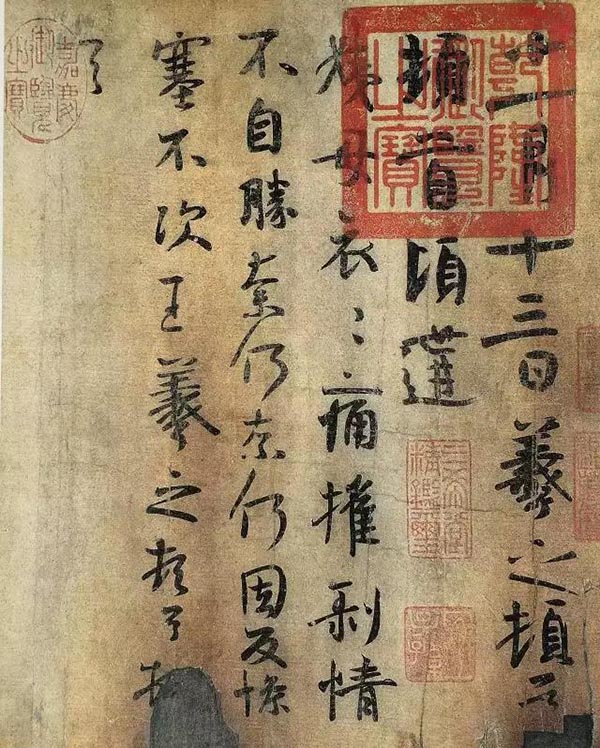 十一月十三日羲之頓首
頓首頃遘
姨母哀〻痛摧剥情
不自勝奈何奈何因反慘
塞不次王羲之頓首頓
首
乾隆御覽之寶
嘉慶御覽之寶
三希堂精鑑璽